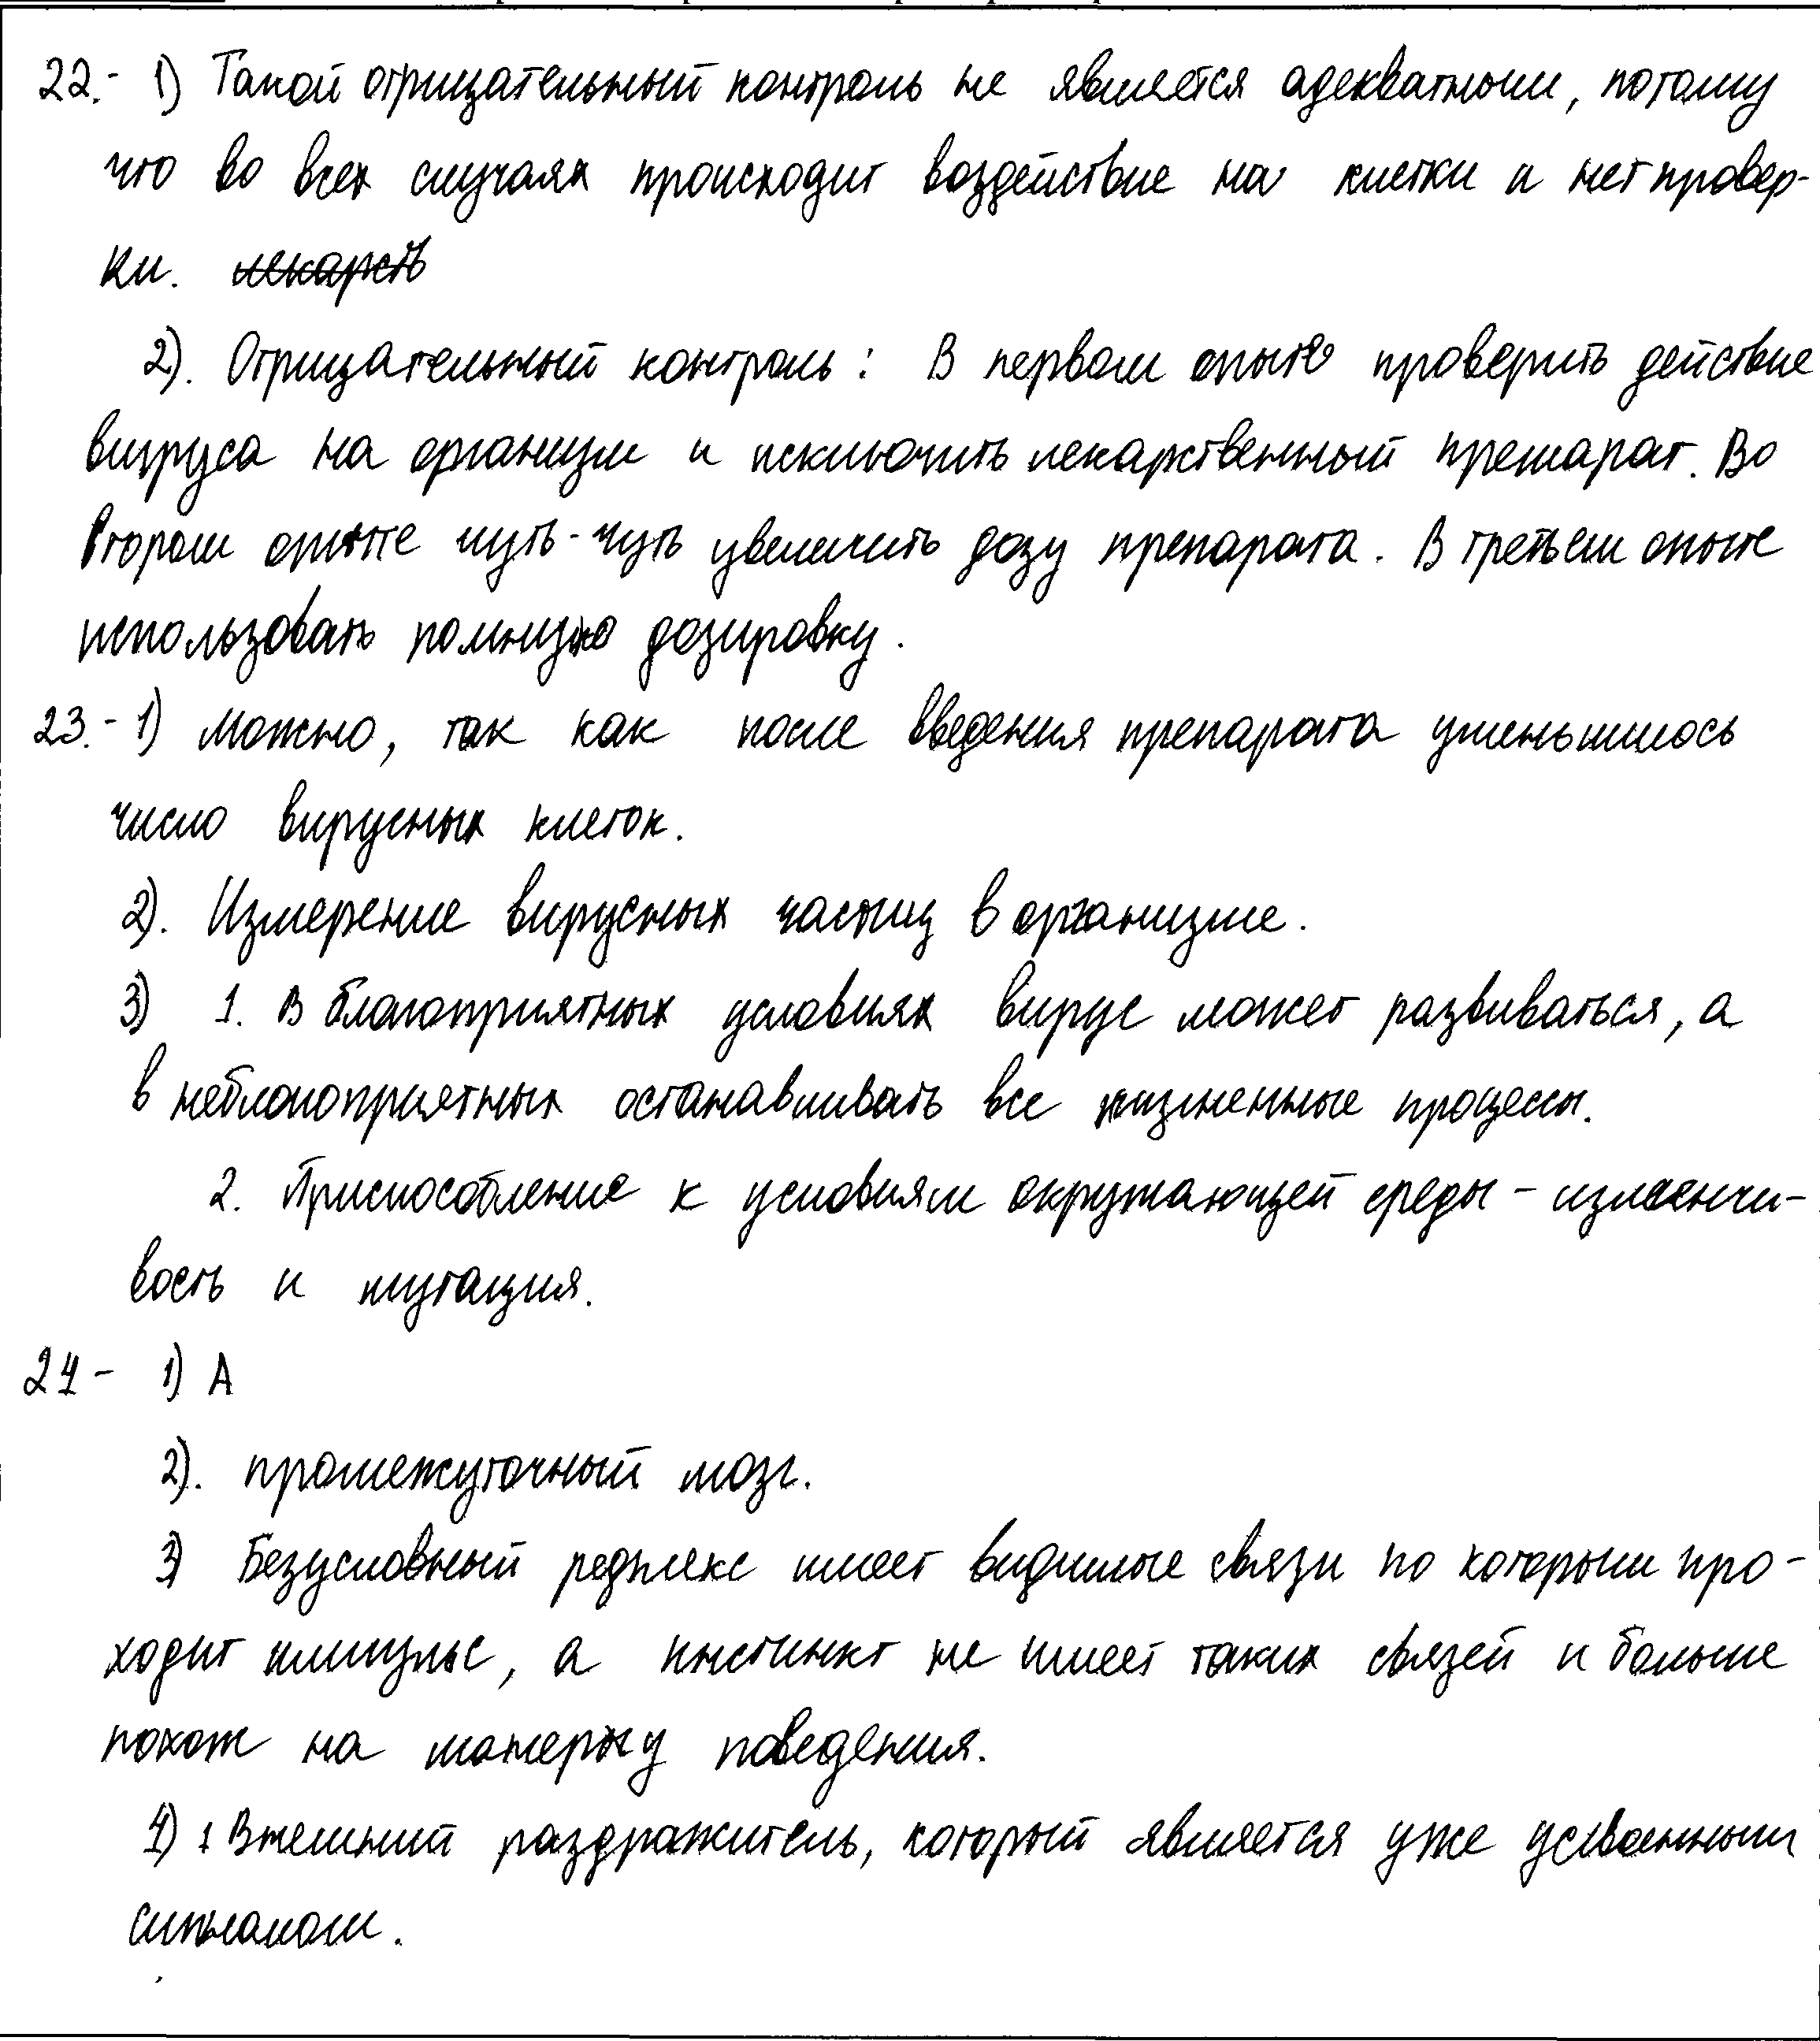 22.- 1) Такой отрицательный контроль не является адекватным, потому
что во всех случаях происходит воздействие на клетки и нет провер-
ки. лекарств
2). Отрицательный контроль: В первом опыте проверить действие
вируса на организм и исключить лекарственный препарат. Во
втором опыте чуть-чуть увеличить дозу препарата. В третьем опыте
использовать полную дозировку.
23.- 1) Можно, так как после введения препарата уменьшилось
число вирусных клеток.
2). Измерение вирусных частиц в организме.
3) 1. В благоприятных условиях вирус может развиваться, а
в неблагоприятных останавливать все жизненные процессы.
2. Приспособление к условиям окружающей среды - изменчи-
вость и мутация.
24- 1) А
2). промежуточный мозг.
3) Безусловный рефлекс имеет видимые связи по которым про-
ходит импульс, а инстинкт не имеет таких связей и больше
похож на манеру поведения.
4) 1 Внешний раздражитель, который является уже усвоенным
сигналом.